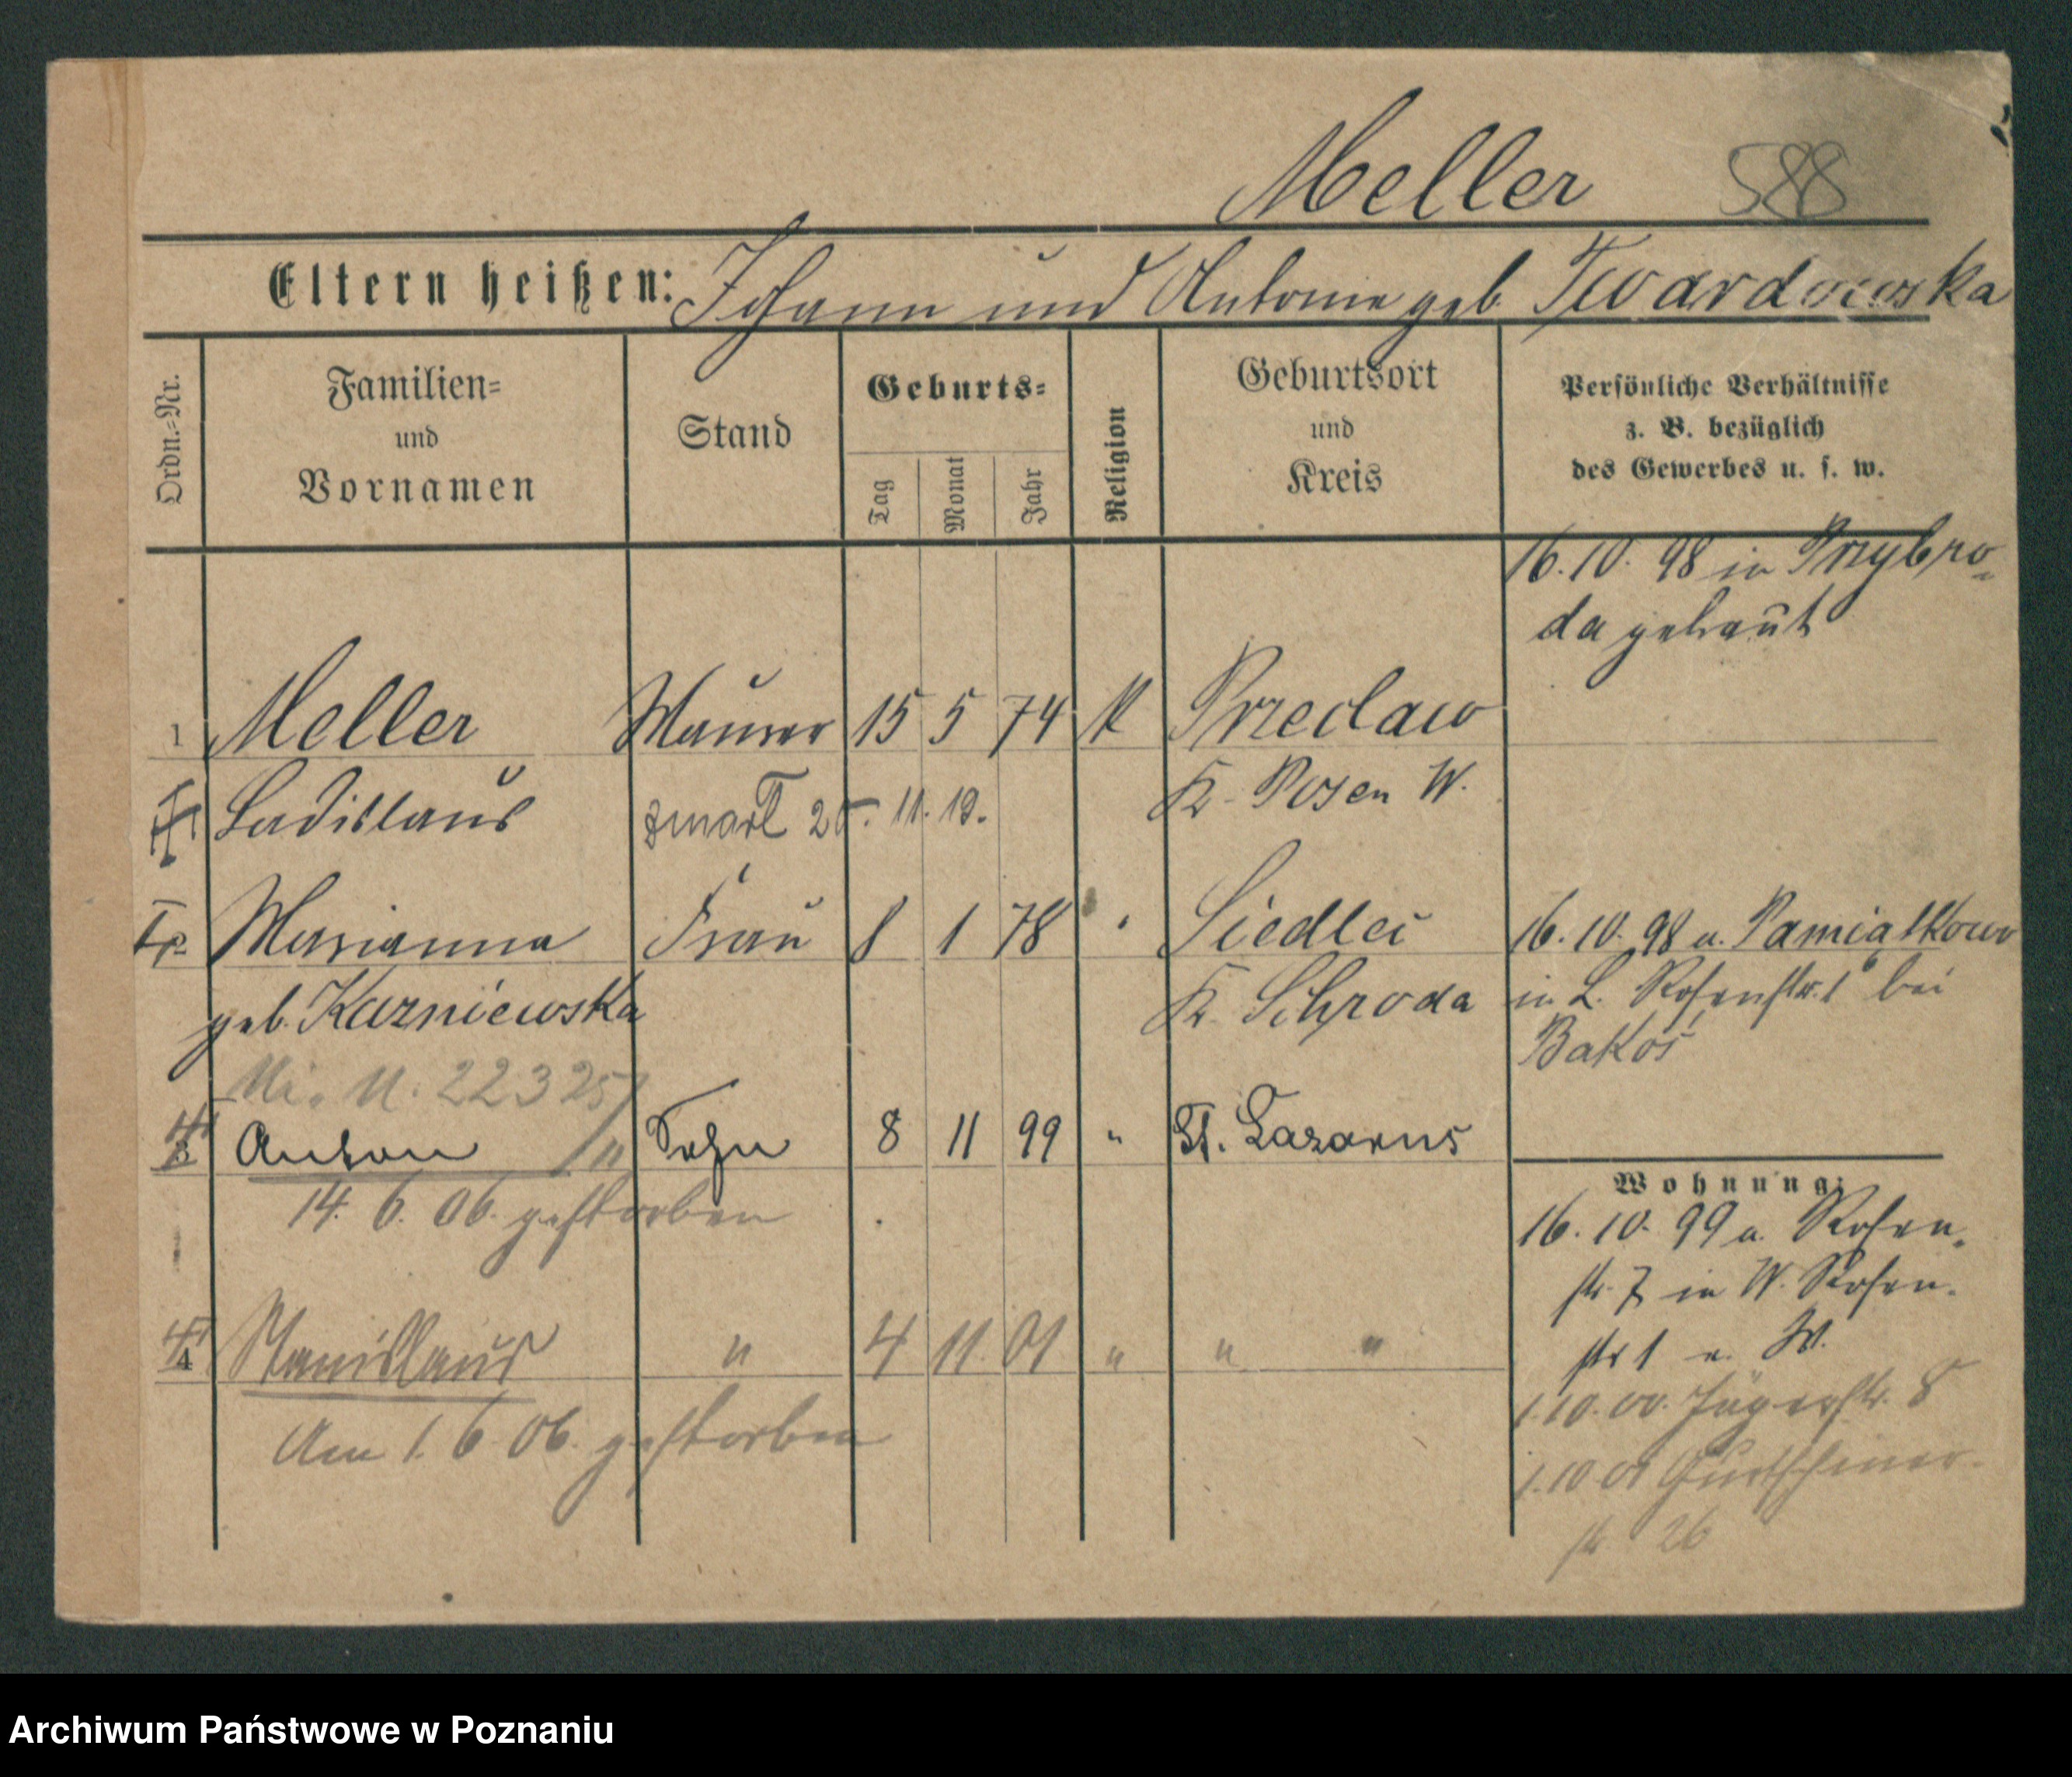 Meller 588
Eltern heißen: Johann und Antonie geb. Twardowska
Ordn.=Nr.
Familien=
und
Vornamen
Stand
Geburts=
Tag
Monat
Jahr
Religion
Geburtsort
und
Kreis
Persönliche Verhältnisse
z. B. bezüglich
des Gewerbes u. s. w.
16. 10. 98 in Przybro-
da getraut
1 Meller Maurer 15 5 74 K Przeclaw
Ladislaus zmarł 25. 11. 19. Kr. Posen W.
Marianna Frau 8 1 78 " Siedlec 16. 10. 98 a. Pamiątkowo
geb. Kazniewska Kr. Schroda in L. Rosenstr. 1 bei
Bakoś
22325
3 Anton " Sohn 8 11 99 " St. Lazarus
14. 6. 06. gestorben
4 Stanislaus " 4 11. 01 " " "
Am 1. 6. 06. gestorben
Wohnung:
16. 10. 99 a. Rosen-
str. 7 in W. Rosen-
str 1 a. W.
1. 10. 00. Jägerstr. 8
1. 10 01 Gurtschiner-
str 26
Archiwum Państwowe w Poznaniu